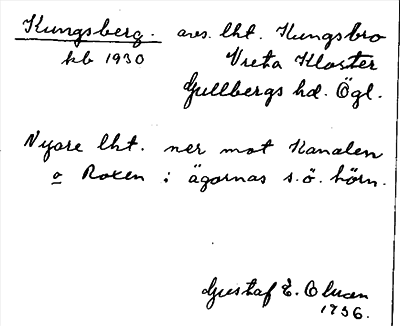 Kungsberg. avs. lht. Kungsbro
kb 1930 Vreta Kloster
Gullbergs hd. Ögl.
Nyare lht. ner mot Kanalen
o Roxen i ägornas s.ö. hörn.
Gustaf E. Olsson
1936.